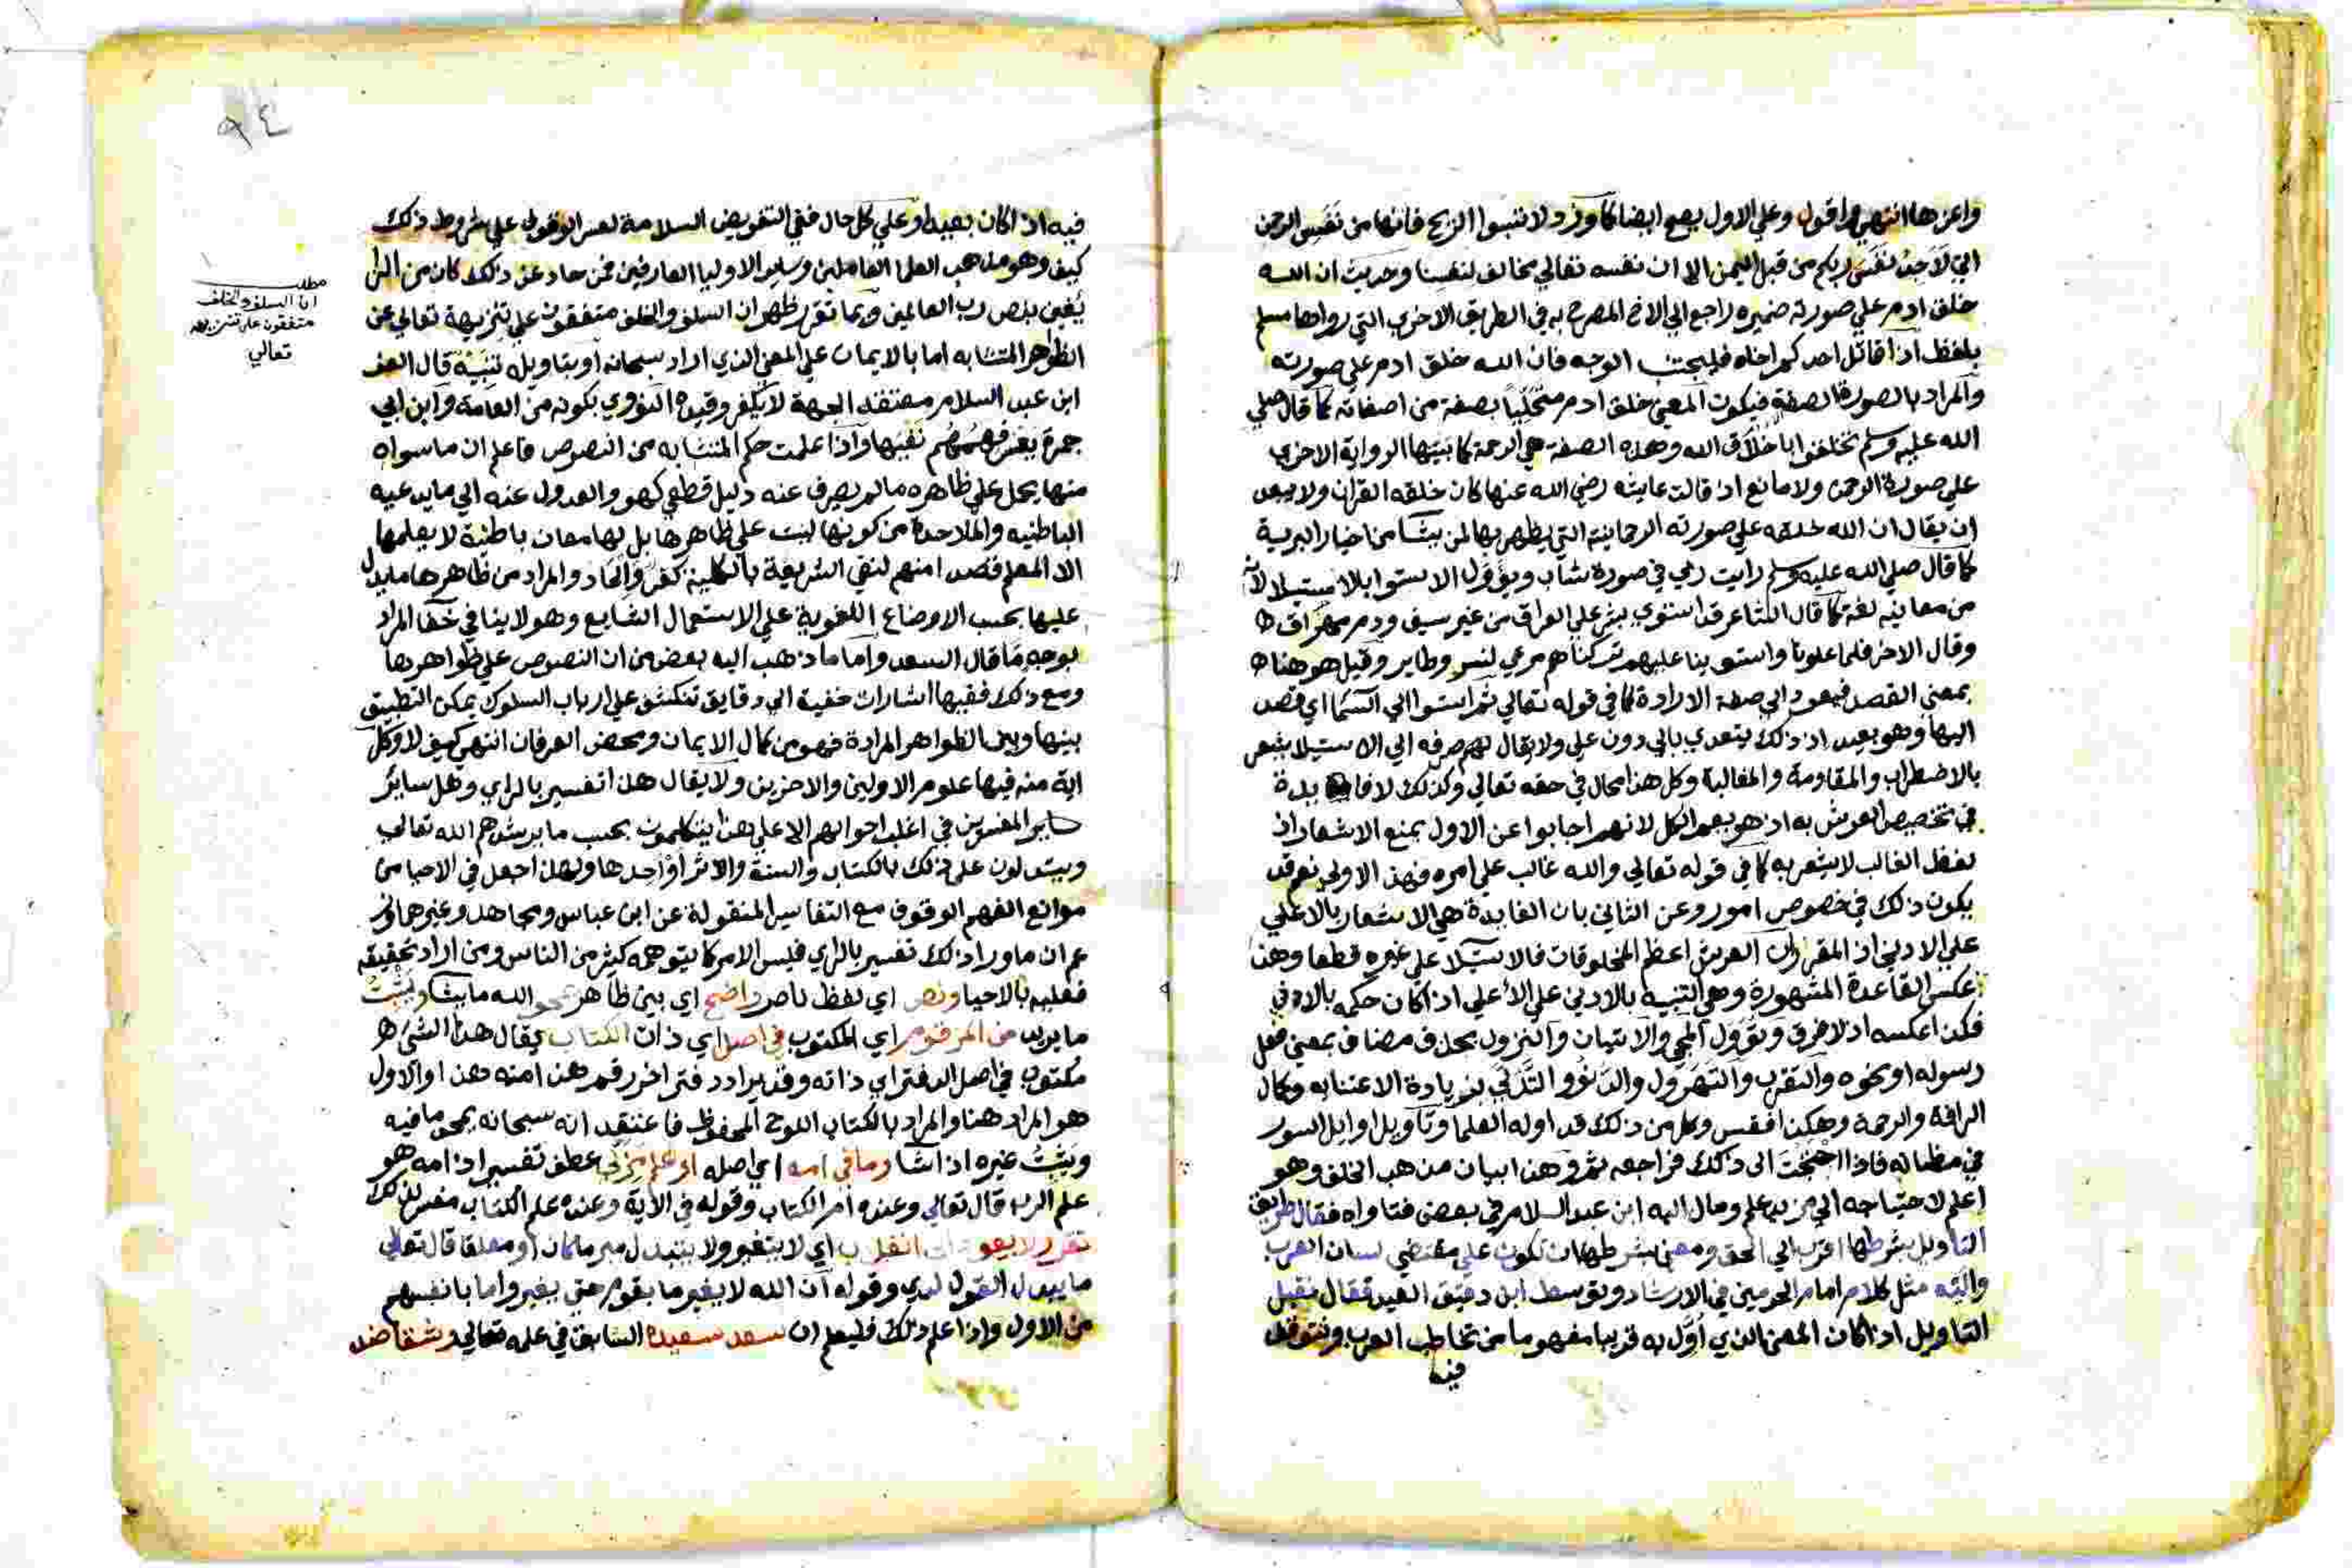 واعزها انتهي واقول وعلي الاول يصع ايضا كما ورد لا تسبوا الريح فانها من نَفَسِ الرحمن
اني لَاَجِدُ نَفَسَ ربكم من قبل اليمن الا ان نفسه تعالي مخالف لنفسنا وحديث ان الله
خلق ادم علي صورته ضميره راجع الي الاخ المصرح به في الطريق الاخري التي رواها مسلم
بلفظ اذا قاتل احدكم اخاه فليجتنب الوجه فان الله خلق ادم علي صورته
والمراد بالصورة الصفة فيكون المعني خلق ادم متخليا بصفة من اصفاته كما قال صلي
الله عليه وسلم تخلقوا باخلاق الله وهذه الصفة هي الرحمة كما بينتها الرواية الاخري
علي صورة الرحمن ولا مانع اذ قالت عايشه رضي الله عنها كان خلقه القران ولا يبعد
ان يقال ان الله خلقه علي صورته الرحمانية التي يظهر بها لمن يشا من اخيار البرية
كما قال صلي الله عليه وسلم رايت ربي في صورة شاب ويؤول الاستوا بالاستيلا لانه
من معانيه لغة كما قال الشاعر قد استوي بشر علي العراق من غير سيف ودم مهراق ها
وقال الاخر فلما علونا واستوينا عليهم تركناهم مرعي لنسر وطاير وقيل هو هنا ها
بمعني القصد فيعود الي صفة الارادة كما في قوله تعالي ثم استوا الي السما اي قصد
اليها وهو بعيد اذ ذلك يتعدي بالي دون علي ولا يقال لهم صرفه الي الاستيلا يشعر
بالاضطراب والمقاومة والمغالبة وكل هذا محال في حقه تعالي وكذلك لا فا يدة
في تخصيص العرش به اذ هو يعم الكل لانهم اجابوا عن الاول بمنع الاشعار اذ
لفظ الغالب لا يشعر به كما في قوله تعالي والله غالب علي امره فهذ الاولي نعم قد
يكون ذلك في خصوص امور وعن الثاني بان الفايدة هي الاشعار بالاعلي
علي الادني اذ المقرر ان العرش اعظم المخلوقات فالاستيلا علي غيره قطعا وهذا
عكس القاعدة المشهورة وهي التنبيه بالادني علي الاعلي اذا كان حكمه بالاولي
فكذا عكسه اذ لا فرق ويؤول المجي والاتيان والنزول بحذف مضاف بمعني فعل
رسوله او نحوه والتقرب والتهرول والدنو والتدلي بزيادة الاعتنا به وكمال
الرافة والرحمة وهكذا فقس وكل من ذلك قد اوله العلما وتاويل اوايل السور
في مظانه فاذا احتجت الي ذلك فراجعه ثم وهذا بيان مذهب الخلف وهو
اعلم لاحتياجه الي مزيد علم ومال اليه ابن عبد السلام في بعض فتاواه فقال طريق
التاويل بشرطها اقرب الي الحق ومعني بشرطها ان تكون علي مقتضي لسان العرب
مثل كلام امام الحرمين في الارشاد وتوسط ابن دقيق العيد فقال نقبل
التاويل اذا كان المعني الذي اُوّل به قريبا مفهوما من تخاطب العرب ونتوقف
فيه
٩٤
فيه اذا كان بعيدا وعلي كل حال ففي التفويض السلامة لعسر الوقوف علي شروط ذلك
كيف وهو مذهب العلما العاملين وساير الاوليا العارفين فمن حاد عن ذلك كان من
بنص رب العالمين وبما تقرر ظهر ان السلف والخلف متفقون علي تنزيهه تعالي عن
الظواهر المتشابه اما بالايمان علي المعني الذي اراد سبحانه او بتاويله تنبيه قال العز
ابن عبد السلام معتقد الجهة لا يكفر وقيده النووي بكونه من العامة وابن ابي
جمرة بعسر فهمهم نفيها واذا علمت حكم المتشابه من النصوص فاعلم ان ما سواه
منها يحمل علي ظاهره ما لم يصرف عنه دليل قطعي كهو والعدول عنه الي ما يدعيه
الباطنيه والملاحدة من كونها ليست علي ظاهرها بل لها معان باطنة لا يعلمها
الا المعلم قصدا منهم لنفي الشريعة بالكلية كفر والحاد والمراد من ظاهرها ما يدل
عليها بحسب الاوضاع اللغوية علي الاستعمال الشايع وهو لا ينافي خفا المراد
بوجه ما قال السعد واما ما ذهب اليه بعض من ان النصوص علي ظواهرها
ومع ذلك ففيها اشارات خفية الي دقايق تنكشف علي ارباب السلوك يمكن التطبيق
بينها وبين الظواهر المرادة فهو من كمال الايمان ومحض العرفان انتهي كيف لا وكل
اية منه فيها علوم الاولين والاخرين ولا يقال هذا تفسير بالراي وهل ساير
ساير المفسرين في اغلب احوالهم الا علي هذا يتكلمون بحسب ما يرشدهم الله تعالي
ويستدلون علي ذلك بالكتاب والسنة والاثر او احدها ولهذا جعل في الاحيا من
موانع الفهم الوقوف مع التفاسير المنقولة عن ابن عباس ومجاهد وغيرهما وز
عم ان ما ورا ذلك تفسير بالراي فليس الامر كما يتوهمه كثير من الناس ومن اراد تحقيقه
فعليه بالاحيا ونص اي لفظ ناص واضح اي بين ظاهر يمحو الله ما يشا ويثبت
ما يريد من المرقوم اي المكتوب في اصل اي ذات الكتاب يقال هذا الشي ها
مكتوب في اصل الدفتر اي ذاته وقد يراد دفتر اخر رقم هذا منه وهذا والاول
هو المراد هنا والمراد بالكتاب اللوح المحفوظ فاعتقد انه سبحانه يمحو ما فيه
ويثبت غيره اذا شا وما في امه اي اصله عطف تفسير اذ امه هو
علم الرب قال تعالي وعنده ام الكتاب وقوله في الاية وعنده علم الكتاب مفسر لذلك
اي لا يتغير ولا يتبدل مبرما كان او معلقا قال تعالي
ما يبدل القول لدي وقوله ان الله لا يغير ما بقوم حتي يغيروا ما بانفسهم
من الاول واذا علم ذلك فليعلم ان سعد سعيده السابق في علمه تعالي وشقا ضد
مطلب
ان السلف والخلف
متفقون علي تنزيهه
تعالي